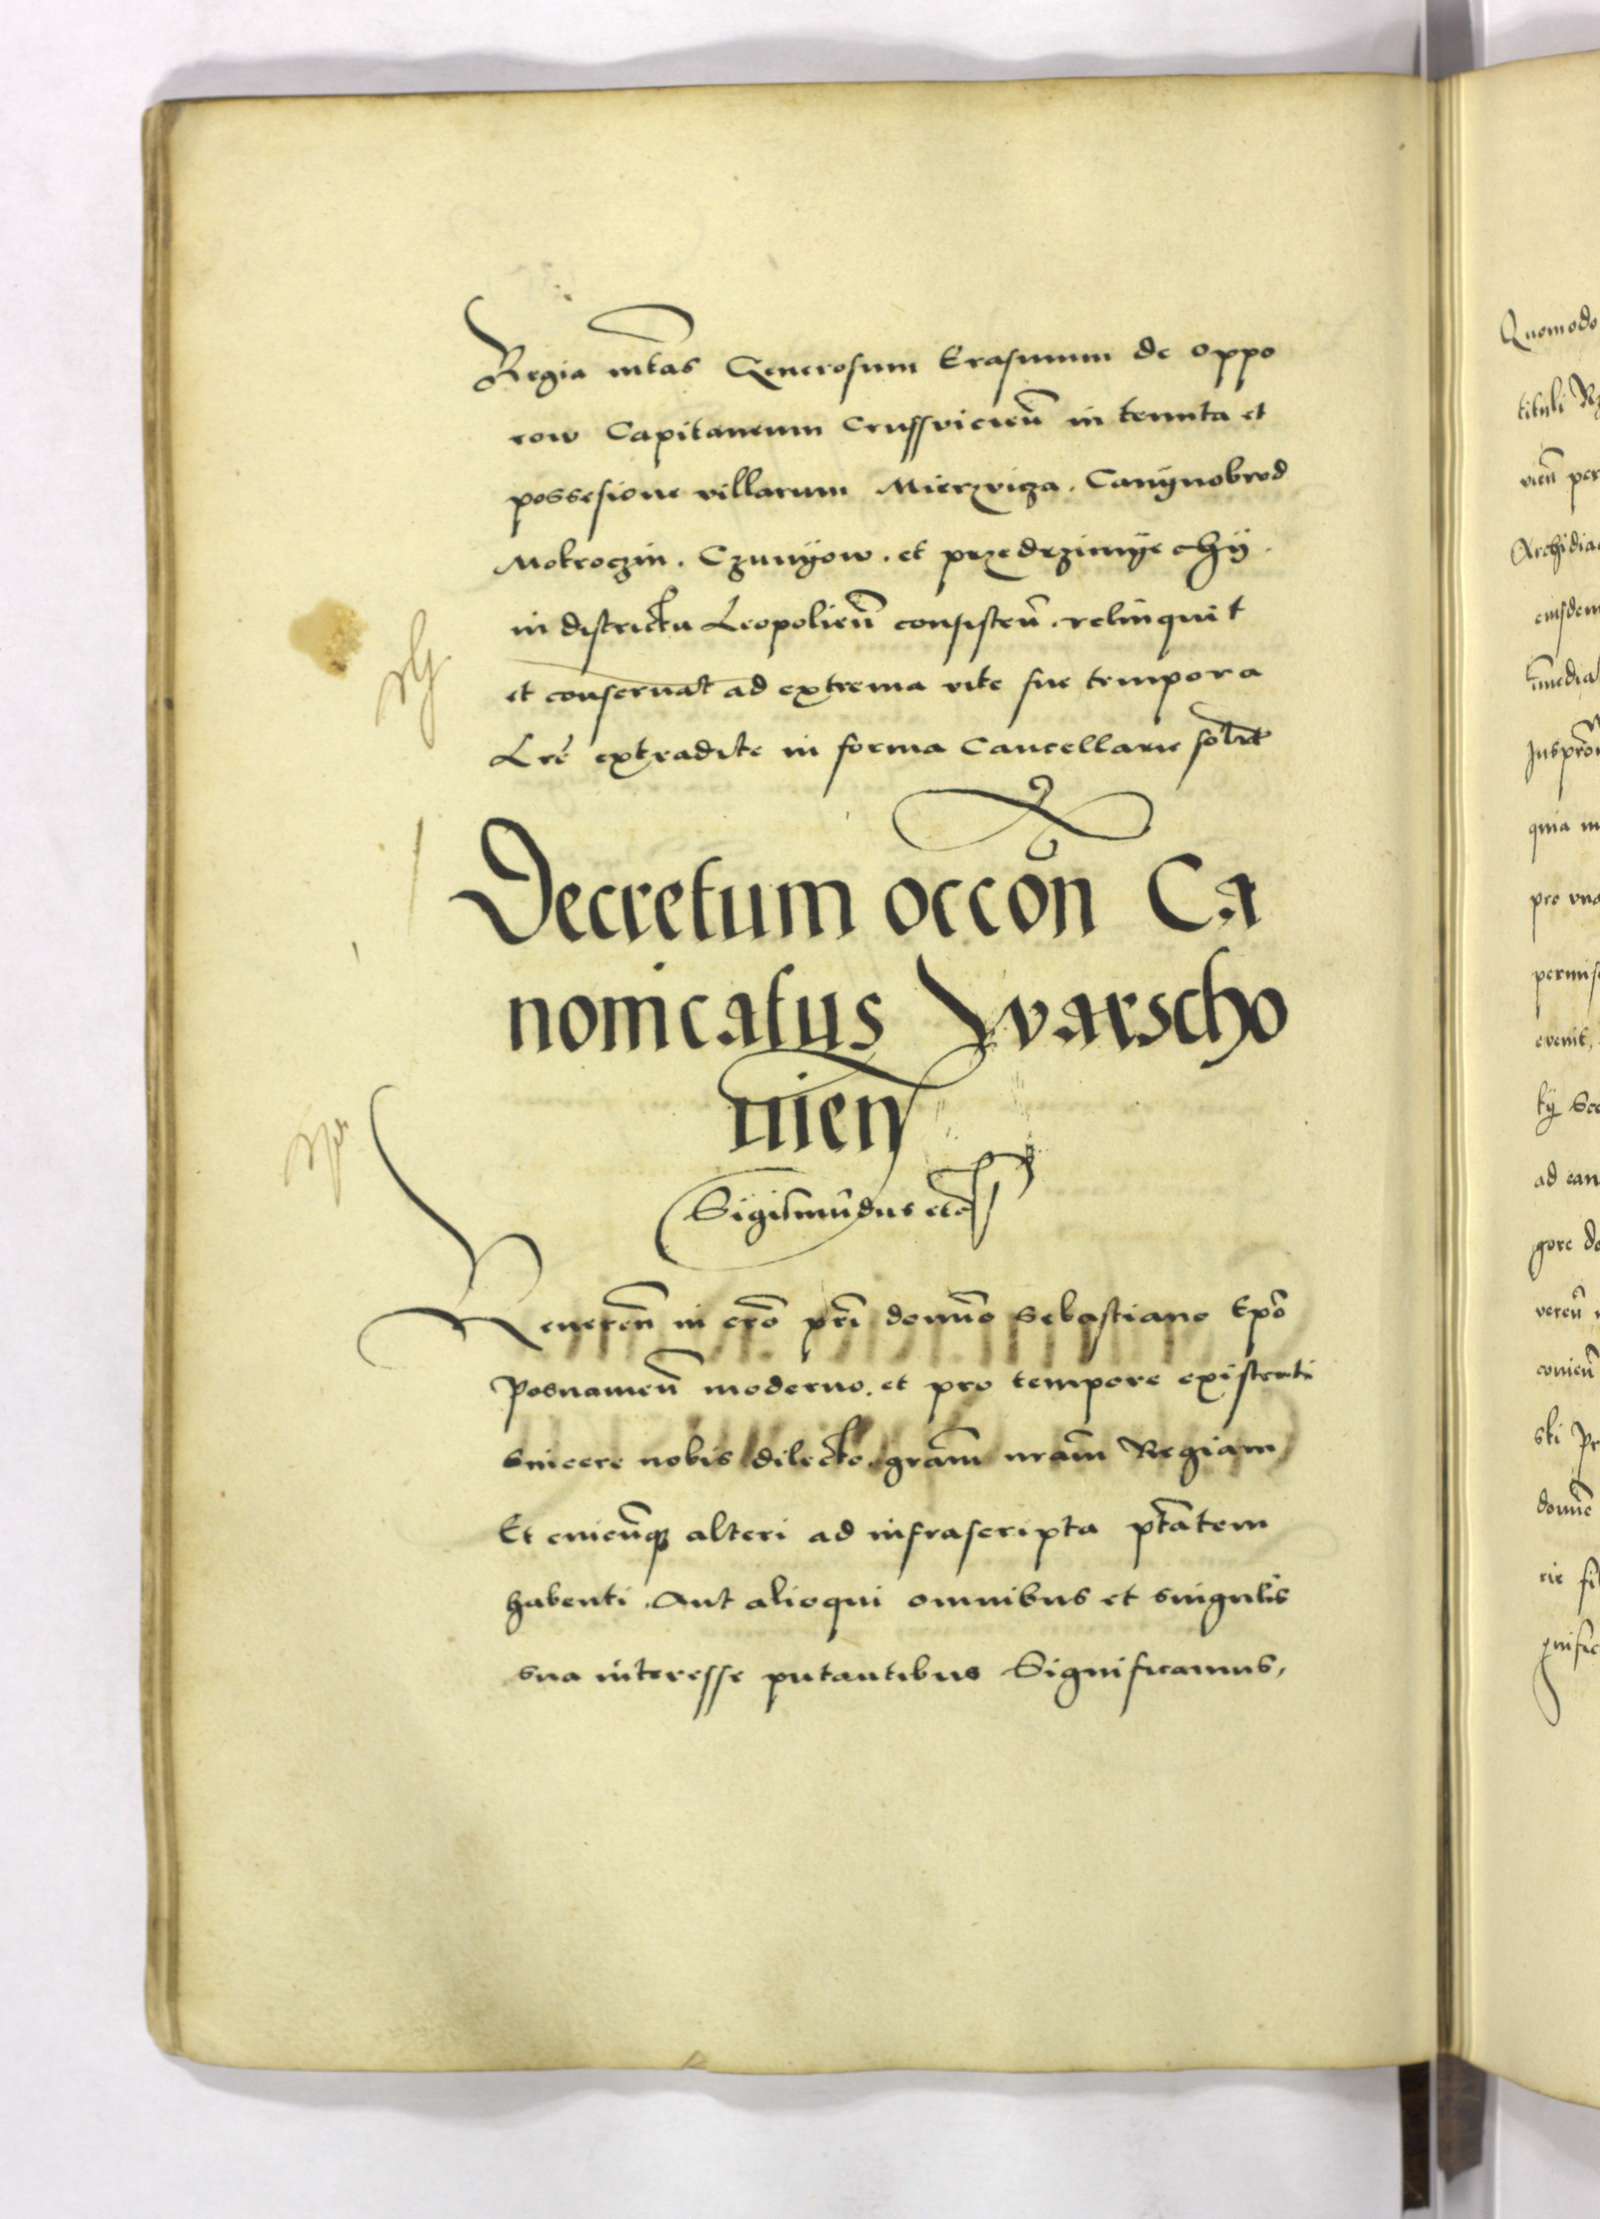 Regia mtas Generosum Erasmum de Oppo
row Capitaneum Crussvicieñ in tenuta et
possesione villarum Mierzviza. Canÿnobrod
Mokroczin. Czunÿow. et przedrzimÿechÿ.
in districtu Leopolieñ consisteñ. relinquit
et conservat ad extrema vite sue tempora
Lre extradite in forma Cancellarie solita
Decretum occoñ Ca
nonicatus Warscho
vieñ
Sigismundus etc
Reveren in cro pri domno Sebastiano Epo
Posnamieñ moderno. et pro tempore existenti
sincere nobis dilecto. gram nram Regiam
Et cuicunq alteri ad infrascripta ptatem
habenti. Aut alioqui omnibus et singulis
sua interesse putantibus Significamus,
Quomodo
tituli
vieñ per
Archidia
eiusdem
quia in
pro una
permis
evenit,
ad ean
gore de
vereñ